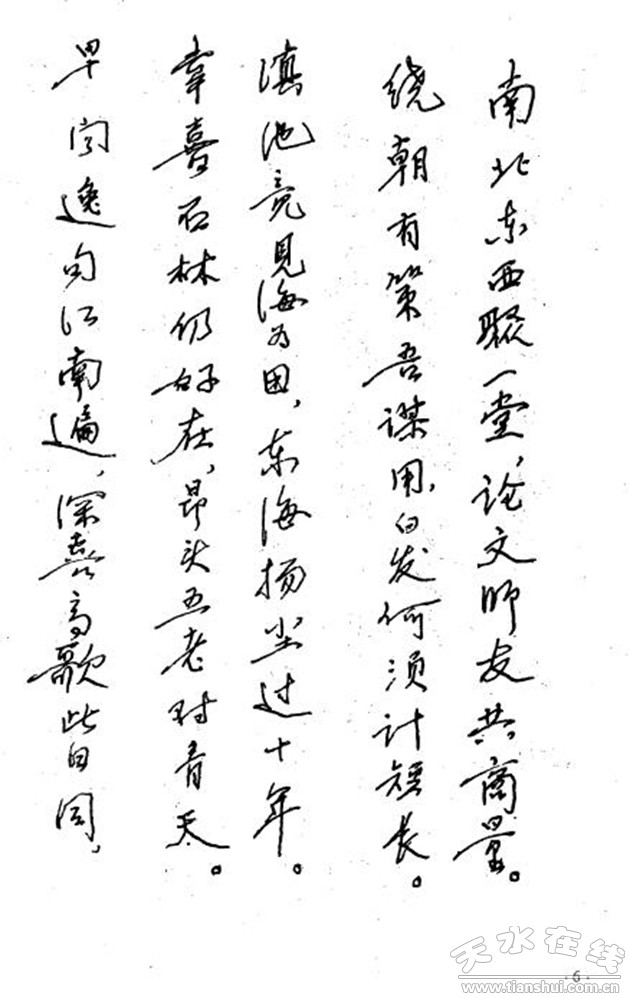 南北东西聚一堂，论文师友共商量。
绕朝有策吾谋用，白发何须计短长。
滇池竟见海为田，东海扬尘过十年。
幸喜石林仍好在，昂头五老对青天。
早闻逸句江南遍，深喜高歌此日同，
天水在线
www.tianshui.com.cn
·6·